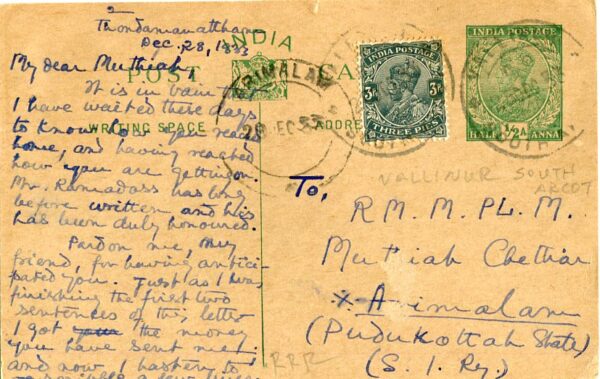 Thondamanatham
Dec. 28, 1933
My dear Muthiah
It is in vain that
I have waited these days
to know how you reached
home, and having reached
how you are getting on.
Mr. Ramadass has long
before written and his
has been duly honoured.
Pardon me, my
friend, for having antici-
pated you. Just as I was
finishing the first two
sentences of this letter
I got the money
you have sent me!
and now I hasten to
INDIA
POST CARD
WRITING SPACE
ADDRE
ARIMALAM
28 DEC 33
INDIA POSTAGE
3 Ps
THREE PIES
INDIA POSTAGE
½ A
HALF ANNA
VALLINUR SOUTH
ARCOT
To,
R. M. M. PL. M.
Muthiah Chettiar
x Arimalam
(Pudukottah State)
(S. I. Ry.)
RRR